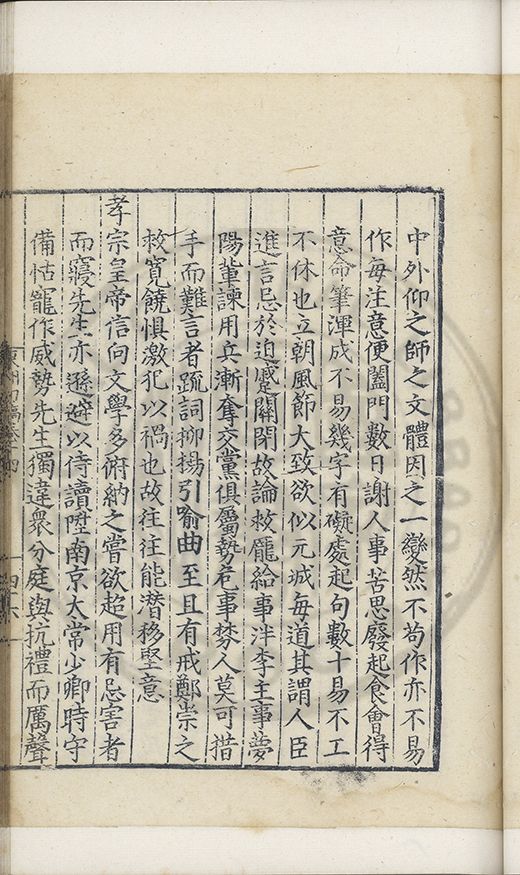 中外仰之師之文體因之一變然不苟作亦不易
作每注意便闔門數日謝人事苦思廢起食會得
意命筆渾成不易幾字有礙處起句數十易不工
不休也立朝風節大致欲似元城每道其謂人臣
進言忌於迫蹙關閑故論救龐給事泮李主事夢
陽輩諫用兵漸奪交黨俱屬勢危事棼人莫可措
手而難言者疏詞抑揚引喻曲至且有戒鄭崇之
救寬饒惧激犯以禍也故往往能潛移堅意
孝宗皇帝信向文學多俯納之嘗欲超用有忌害者
而寢先生亦遜避以侍讀陞南京大常少卿時守
備怙寵作威勢先生獨違衆分庭與抗禮而厲聲